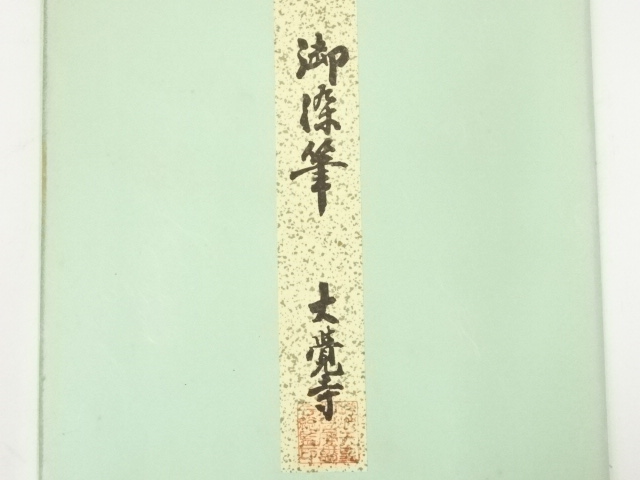 御染筆 大覺寺